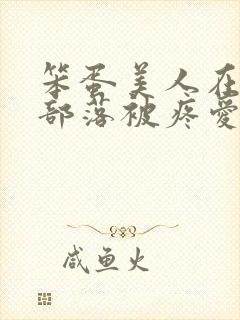 笨蛋美人在
部落被疼爱
咸鱼火